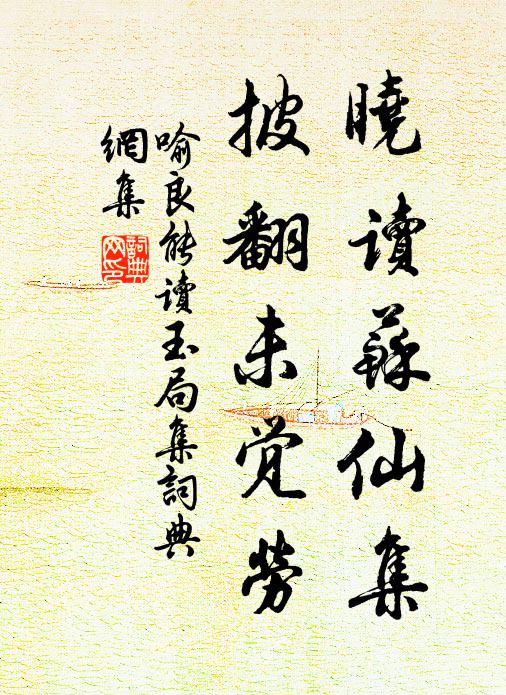 曉讀蘇仙集
披翻未覺勞
喻良能讀玉局集詞典
網集
詞典
网印